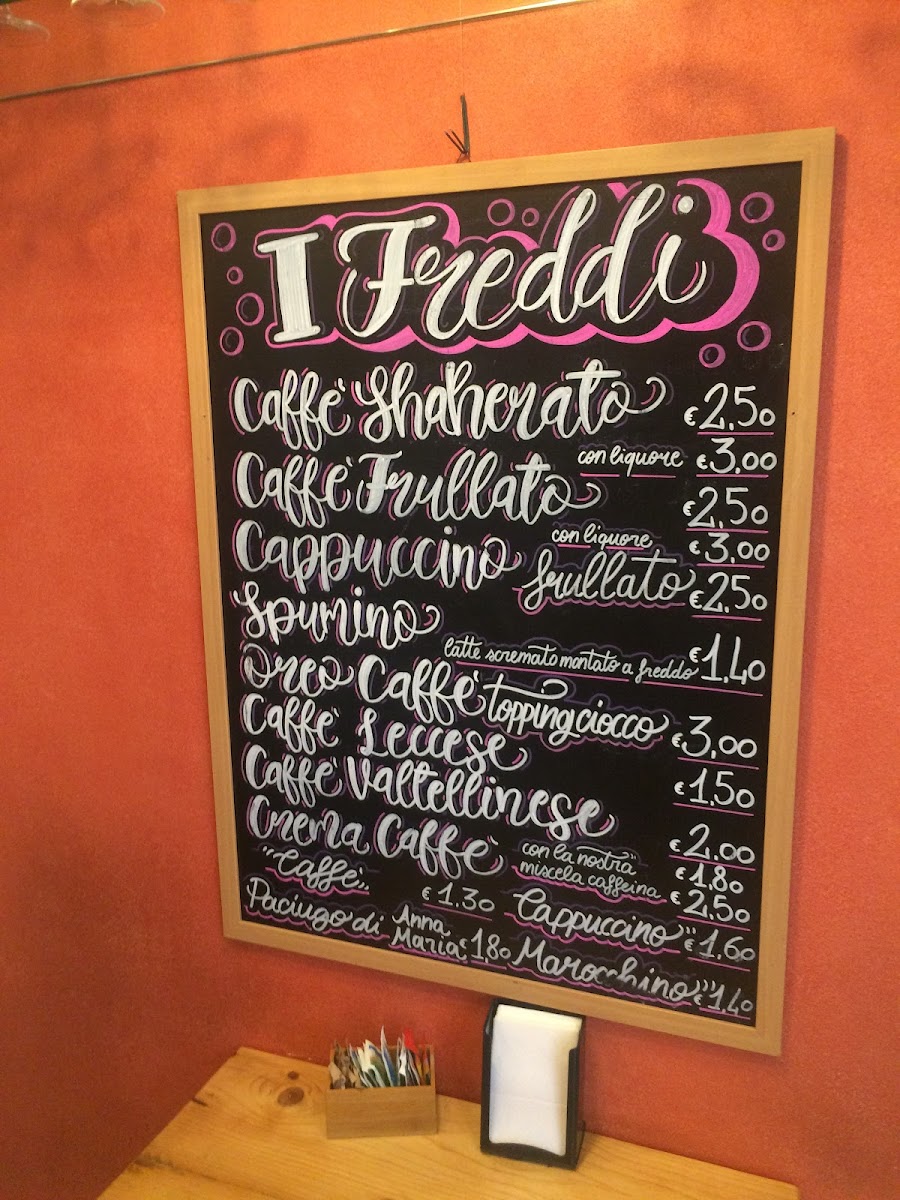 I Freddi
Caffè Shakerato € 2,50
con liquore € 3,00
Caffè Frullato € 2,50
con liquore € 3,00
Cappuccino frullato € 2,50
Spumino
latte scremato montato a freddo € 1,40
Oreo Caffè topping ciocco € 3,00
Caffè Leccese € 1,50
Caffè Valtellinese € 2,00
Crema Caffè con la nostra € 1,80
miscela caffeina € 2,50
"Caffè" € 1.30 Cappuccino" € 1,60
Paciugo di Anna Maria € 1,80 Marocchino" € 1,40